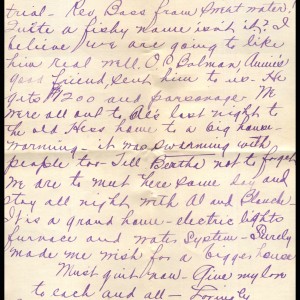 trial - Rev Bass from Sweet water!
Quite a fishy name isn't it? I
believe we are going to like
him real well. O C Bolman Annie's
good friend, sent him to us - He
gets $1200 and parsonage. We
were all out to Al's last night to
the old Hess home to a big house-
warming - it was swarming with
people too - Tell Bertha not to forget
we are to meet here some day and
stay all night with Al and Blanch.
It is a grand home - electric lights
furnace and water system - Surely
made me wish for a bigger house
Must quit now - Give my love
to each and all - Lovingly